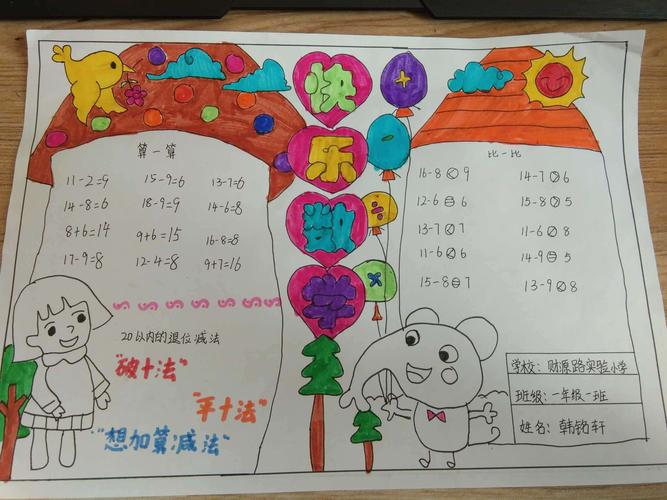 快乐数学
+
-
÷
×
算一算
11-2=9 15-9=6 13-7=6
14-8=6 18-9=9 14-6=8
8+6=14 9+6=15 16-8=8
17-9=8 12-4=8 9+7=16
20以内的退位减法
"破十法"
"平十法"
"想加算减法"
比一比
16-8<9 14-7>6
12-6=6 15-8>5
13-7<7 11-6<8
11-6<6 14-9=5
15-8=7 13-9<8
学校: 财源路实验小学
班级: 一年级一班
姓名: 韩铭轩